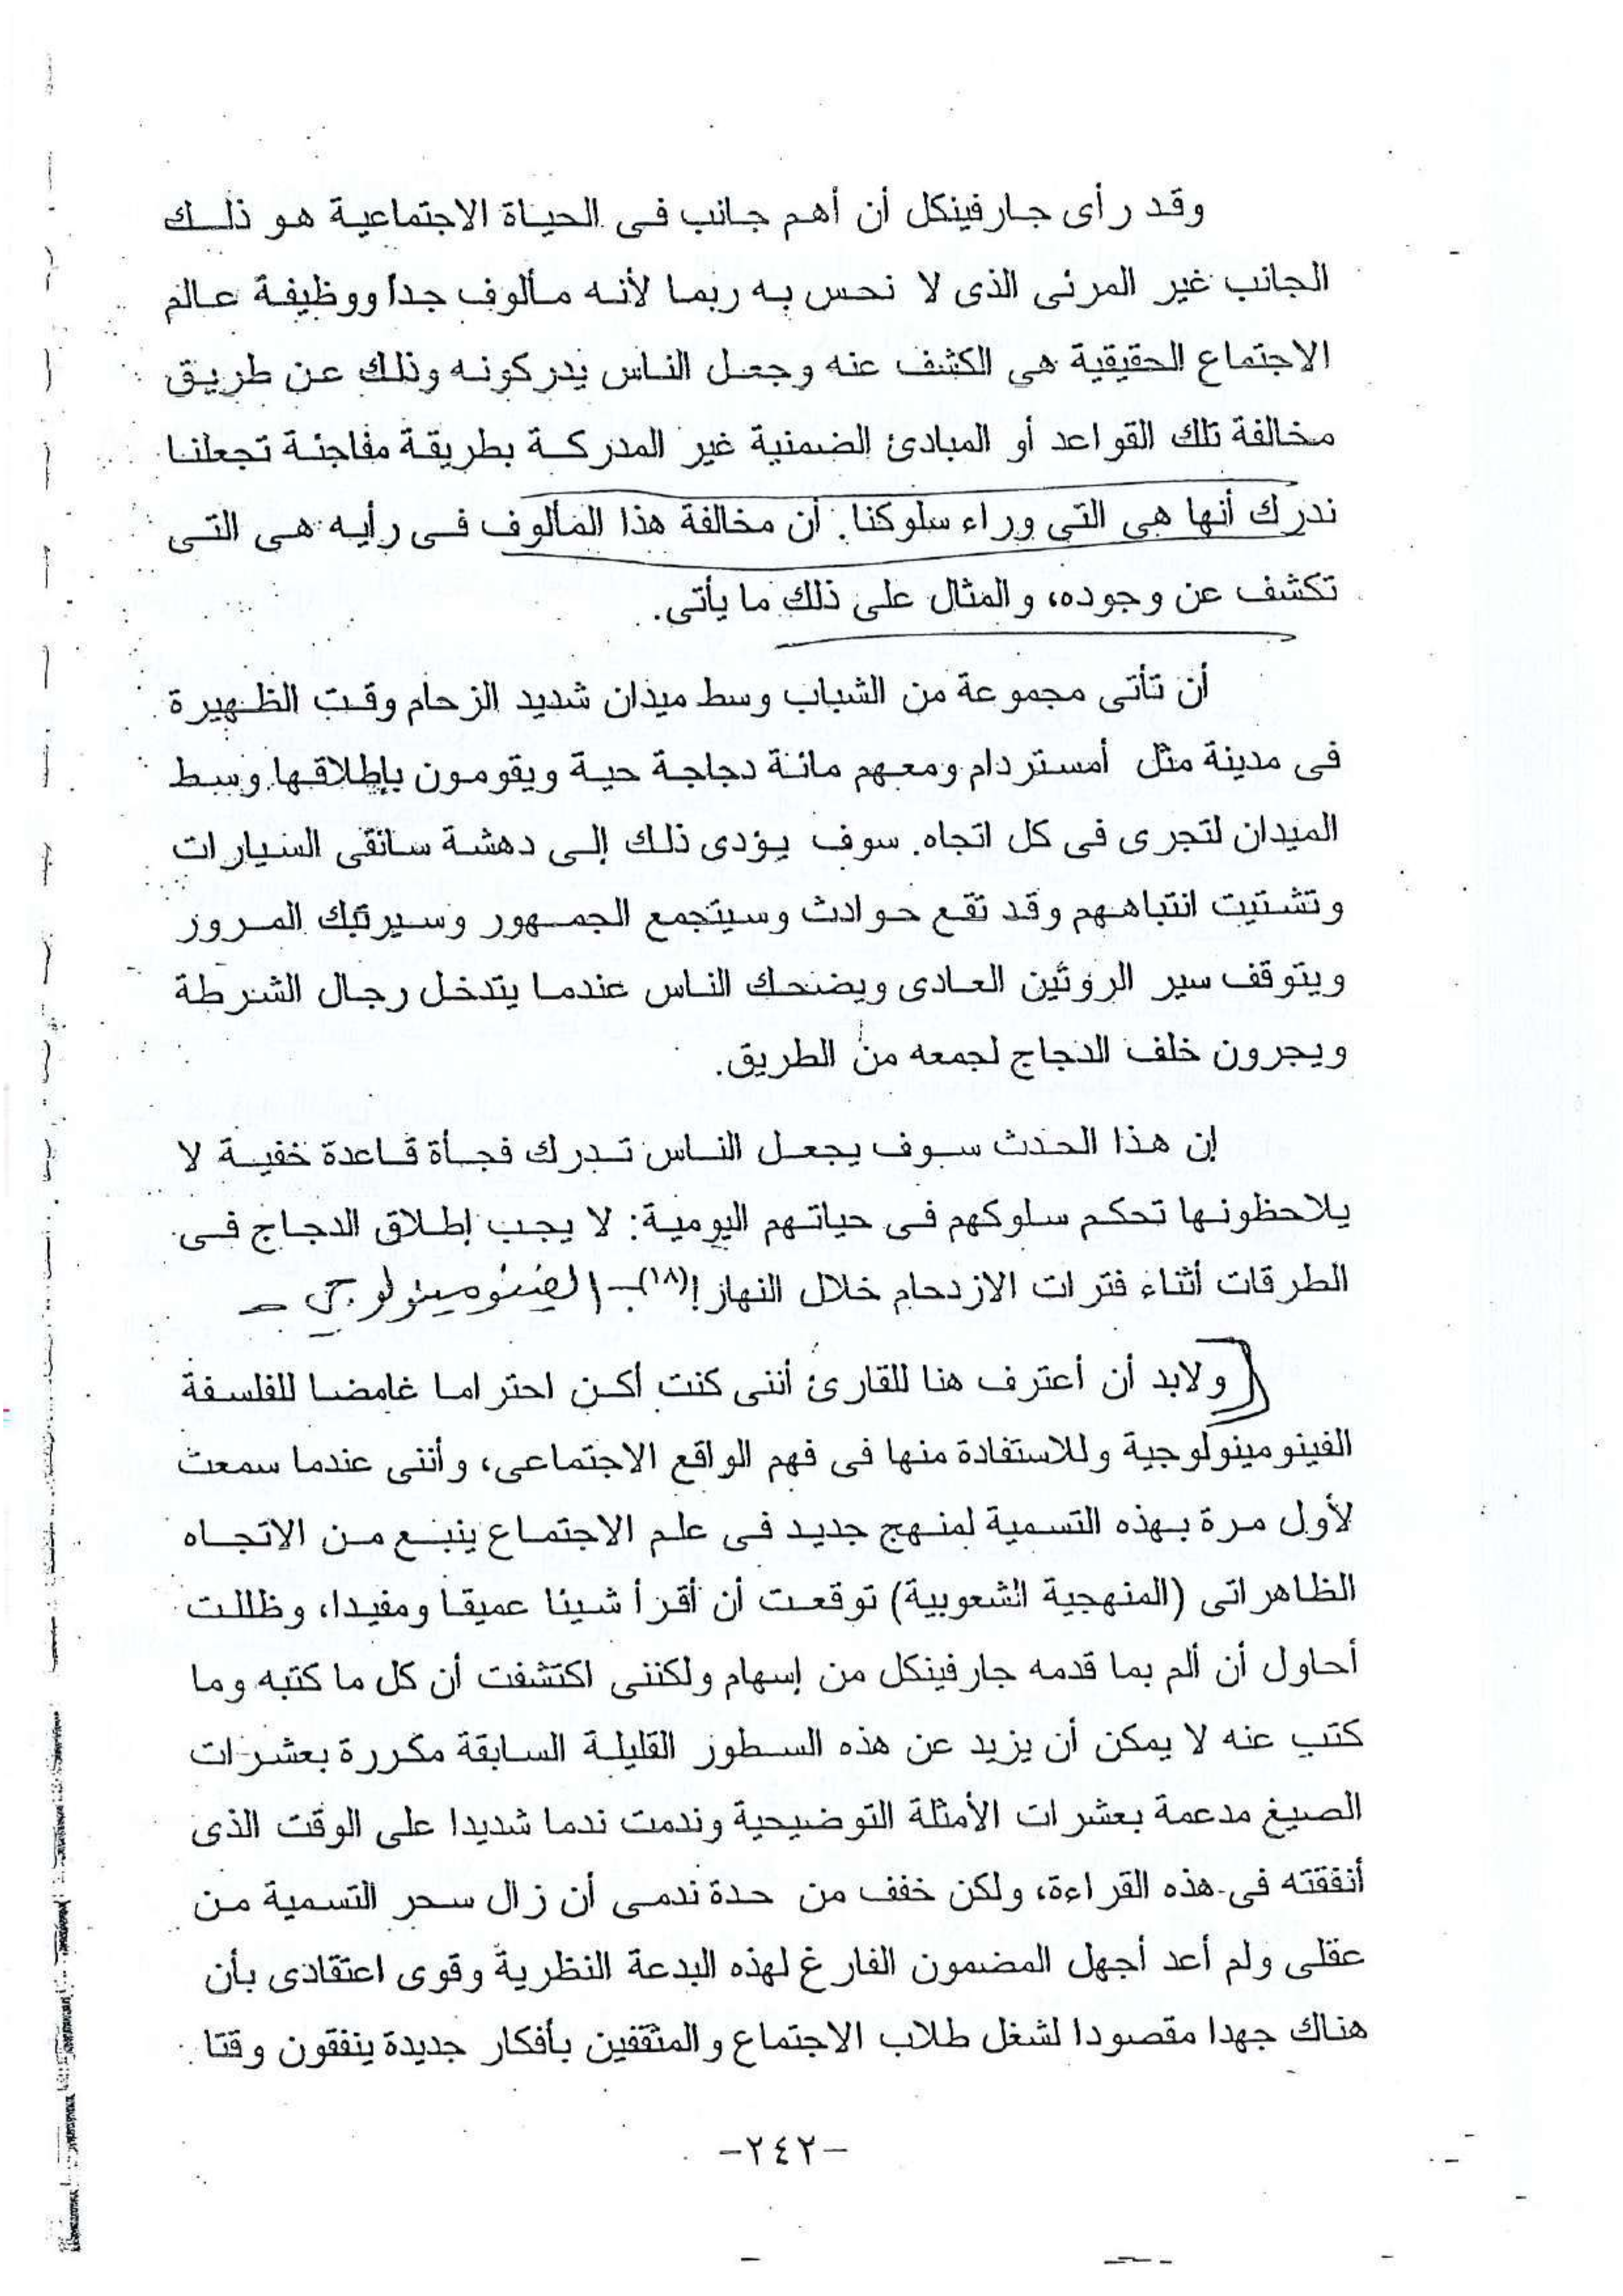 وقد رأى جارفينكل أن أهم جانب فى الحياة الاجتماعية هو ذلك
الجانب غير المرئى الذى لا نحس به ربما لأنه مألوف جداً ووظيفة عالم
الاجتماع الحقيقية هى الكشف عنه وجعل الناس يدركونه وذلك عن طريق
مخالفة تلك القواعد أو المبادئ الضمنية غير المدركة بطريقة مفاجئة تجعلنا
ندرك أنها هى التى وراء سلوكنا. أن مخالفة هذا المألوف فى رأيه هى التى
تكشف عن وجوده، والمثال على ذلك ما يأتى.
أن تأتى مجموعة من الشباب وسط ميدان شديد الزحام وقت الظهيرة
فى مدينة مثل أمستردام ومعهم مائة دجاجة حية ويقومون بإطلاقها وسط
الميدان لتجرى فى كل اتجاه. سوف يؤدى ذلك إلى دهشة سائقى السيارات
وتشتيت انتباههم وقد تقع حوادث وسيتجمع الجمهور وسيرتبك المرور
ويتوقف سير الروتين العادى ويضحك الناس عندما يتدخل رجال الشرطة
ويجرون خلف الدجاج لجمعه من الطريق.
إن هذا الحدث سوف يجعل الناس تدرك فجأة قاعدة خفية لا
يلاحظونها تحكم سلوكهم فى حياتهم اليومية: لا يجب إطلاق الدجاج فى
الطرقات أثناء فترات الازدحام خلال النهار!(١٨)
ولابد أن أعترف هنا للقارئ أننى كنت أكن احتراما غامضا للفلسفة
الفينومينولوجية وللاستفادة منها فى فهم الواقع الاجتماعى، وأننى عندما سمعت
لأول مرة بهذه التسمية لمنهج جديد فى علم الاجتماع ينبع من الاتجاه
الظاهراتى (المنهجية الشعوبية) توقعت أن أقرأ شيئا عميقا ومفيدا، وظللت
أحاول أن ألم بما قدمه جارفينكل من إسهام ولكننى اكتشفت أن كل ما كتبه وما
كتب عنه لا يمكن أن يزيد عن هذه السطور القليلة السابقة مكررة بعشرات
الصيغ مدعمة بعشرات الأمثلة التوضيحية وندمت ندما شديدا على الوقت الذى
أنفقته فى هذه القراءة، ولكن خفف من حدة ندمى أن زال سحر التسمية من
عقلى ولم أعد أجهل المضمون الفارغ لهذه البدعة النظرية وقوى اعتقادى بأن
هناك جهدا مقصودا لشغل طلاب الاجتماع والمثقفين بأفكار جديدة ينفقون وقتا
-٢٤٢-